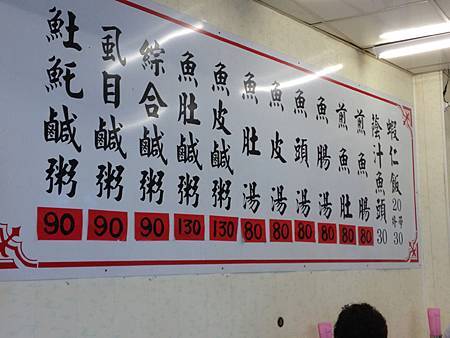 𩵚魠鹹粥 90
虱目鹹粥 90
綜合鹹粥 90
魚肚鹹粥 130
魚皮鹹粥 130
魚肚湯 80
魚皮湯 80
魚頭湯 80
魚腸湯 80
煎魚肚 80
煎魚腸 80
蔭汁魚頭 30
蝦仁飯 20 30